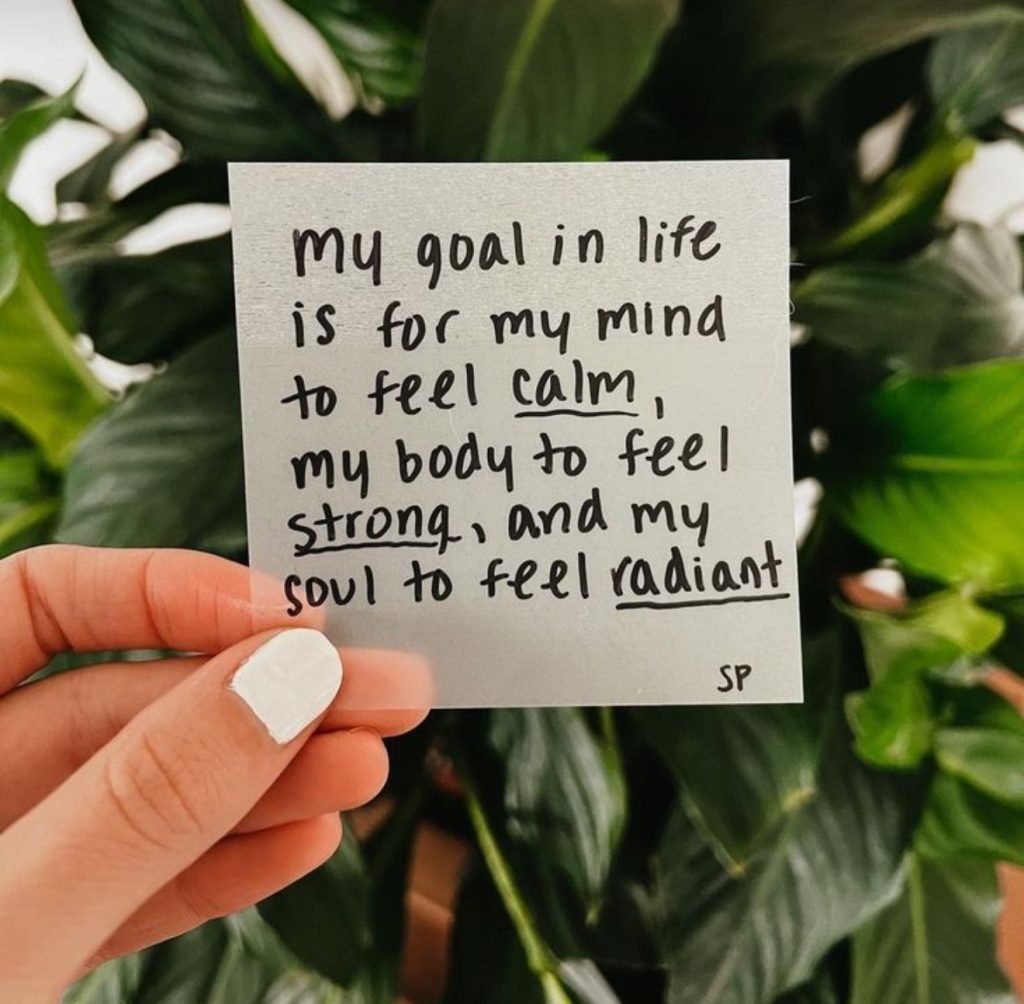 my goal in life
is for my mind
to feel calm,
my body to feel
strong, and my
soul to feel radiant
SP